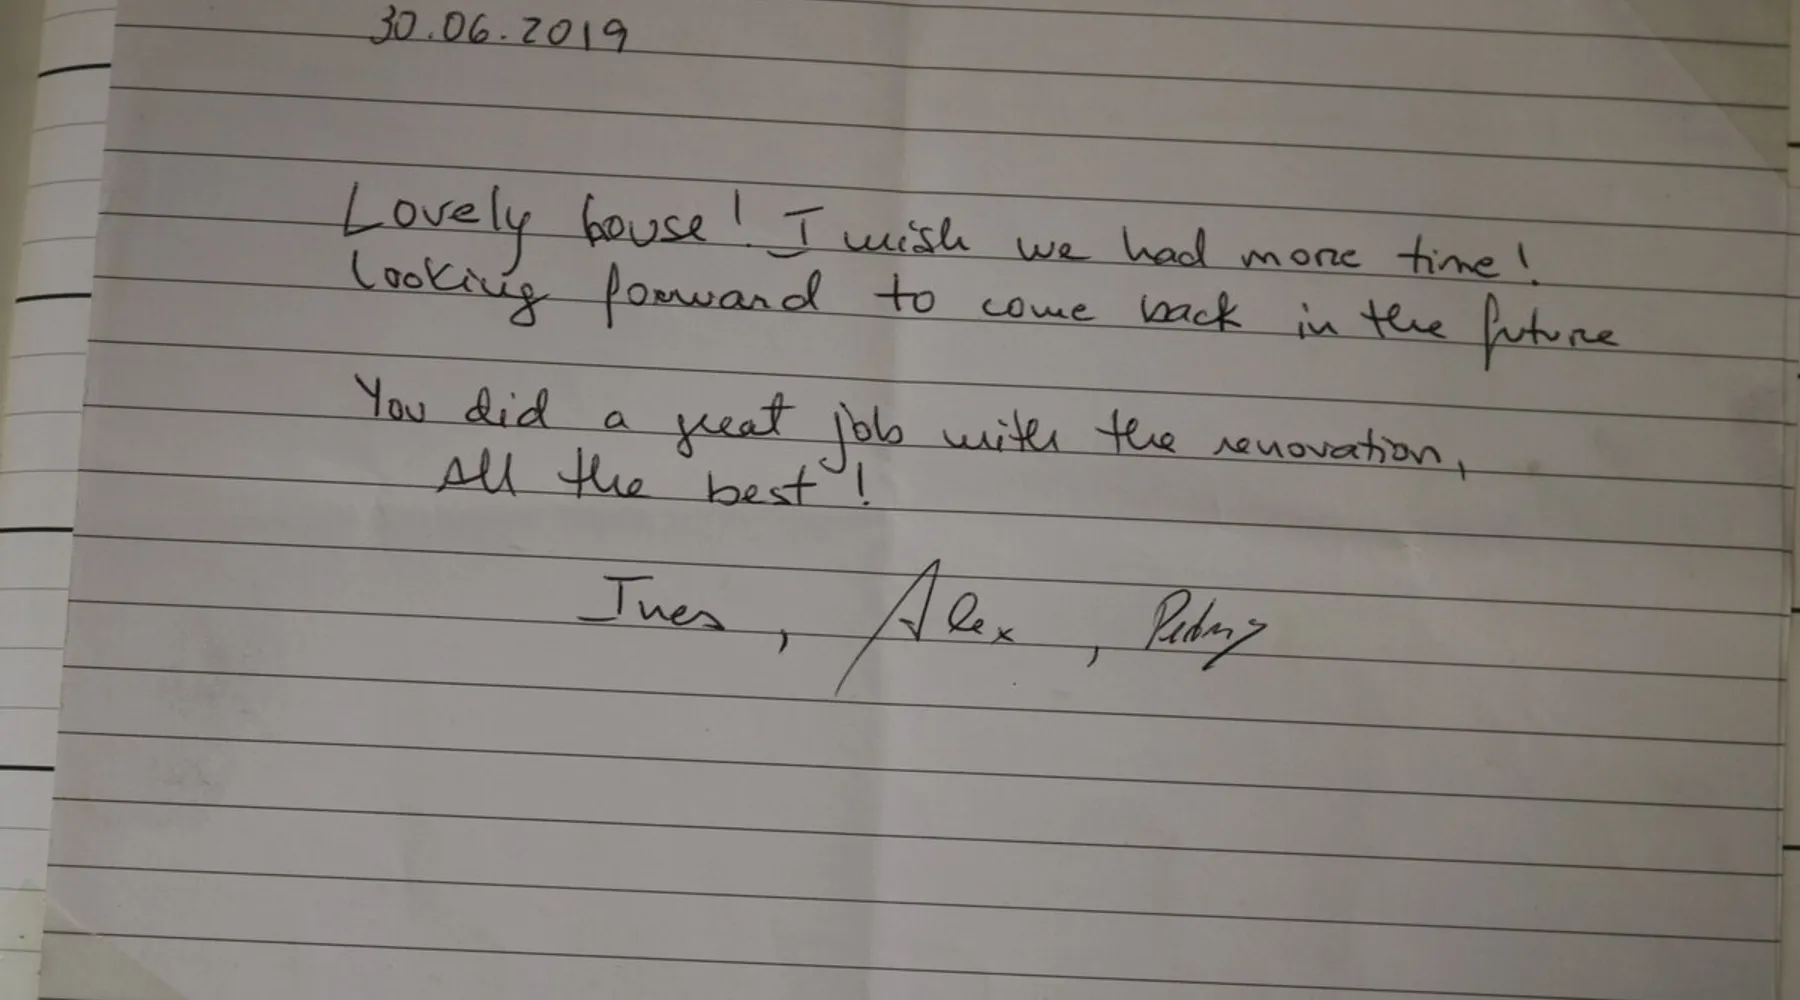 30.06.2019
Lovely house! I wish we had more time!
Looking forward to come back in the future
You did a great job with the renovation,
All the best!
Ines, Alex,